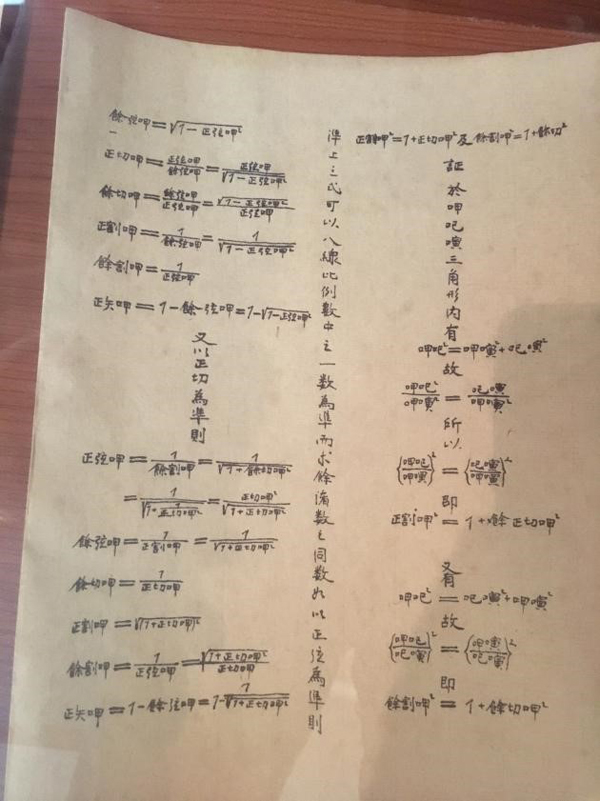 正割呷²=1+正切呷²及餘割呷²=1+餘切²
証於呷吧嗔三角形內有
呷吧²=呷嗔²+吧嗔²
故
呷吧²/呷嗔²=吧嗔²/呷嗔²
所以
{呷吧/呷嗔}²={吧嗔/呷嗔}²
即
正割呷²=1+餘正切呷²
又有
呷吧²=吧嗔²+呷嗔²
故
{呷吧/吧嗔}²={呷嗔/吧嗔}²
即
餘割呷²=1+餘切呷²
準上之式可以八線比例數中之一數為準而求餘諸數之同數如以正弦為準則
餘弦呷=√1-正弦呷²
正切呷=正弦呷/餘弦呷=正弦呷/√1-正弦呷²
餘切呷=餘弦呷/正弦呷=√1-正弦呷²/正弦呷
正割呷=1/餘弦呷=1/√1-正弦呷²
餘割呷=1/正弦呷
正矢呷=1-餘弦呷=1-√1-正弦呷²
又以正切為準則
正弦呷=1/餘割呷=1/√1+餘切呷²
=1/√1+1/正切呷²=正切呷²/√1+正切呷²
餘弦呷=1/正割呷=1/√1+正切呷²
餘切呷=1/正切呷
正割呷=√1+正切呷²
餘割呷=1/正弦呷=√1+正切呷²/正切呷
正矢呷=1-餘弦呷=1-1/√1+正切呷²